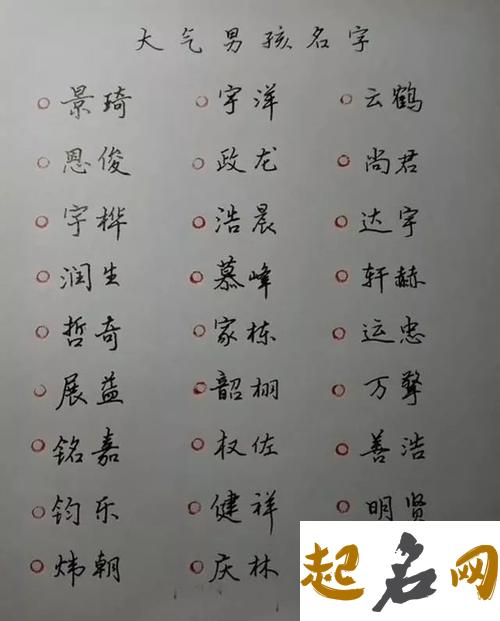 大气男孩名字
景琦 宇洋 云鹤
恩俊 政龙 尚君
宇桦 浩晨 达宇
润生 慕峰 轩赫
哲奇 家栋 运忠
展益 韶栩 万擎
铭嘉 权佐 善浩
钧乐 健祥 明贤
炜朝 庆林
起名网